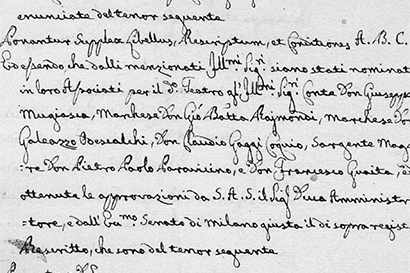 enunciate del tenor seguente
Ponantur Supplex Libellus, Rescriptum, et Conditiones A. B. C.
Ed essendo che dalli menzionati Ill.mi Sig.i siano stati nominat
in loro Associati per il d.o Teatro gl'Ill.mi Sig.i Conte Don Giuseppe
Mugiasca, Marchese Don Gio Batta Rajmondi, Marchese Don
Galeazzo Porcalchi, Don Claudio Gaggi Coquio, Sargente Mag
re Don Pietro Paolo Paravicino, e Don Francesco Guaita, e
ottenute le approvazioni da S. A. S. il Sig.r Duca Amminister
tore, e dall' Ecc.mo Senato di Milano giusta il di sopra regist
Rescritto, che sono del tenor seguente